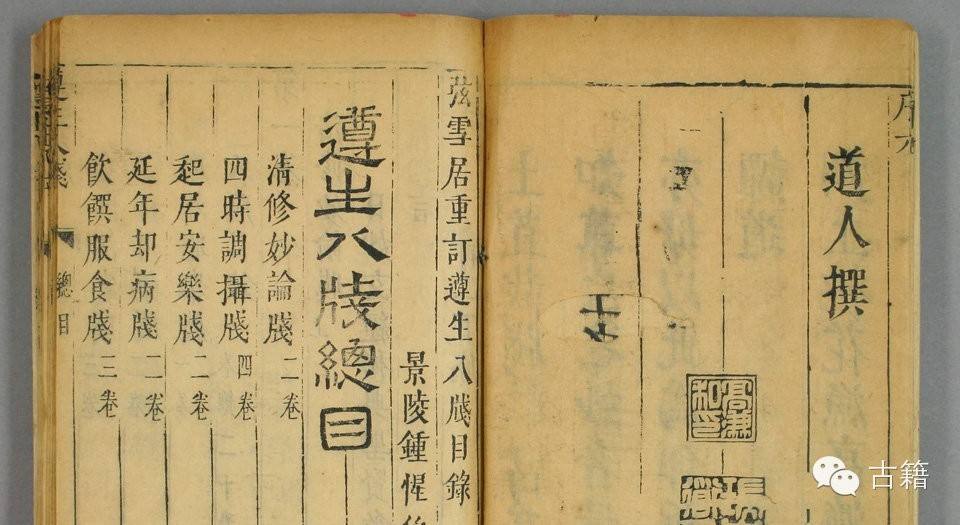 道人撰
弦雪居重訂遵生八牋目錄
景陵鍾惺
遵生八牋總目
清修妙論牋 二卷
四時調攝牋 四卷
起居安樂牋 二卷
延年却病牋 二卷
飲饌服食牋 三卷
遵生八牋 總目
古籍